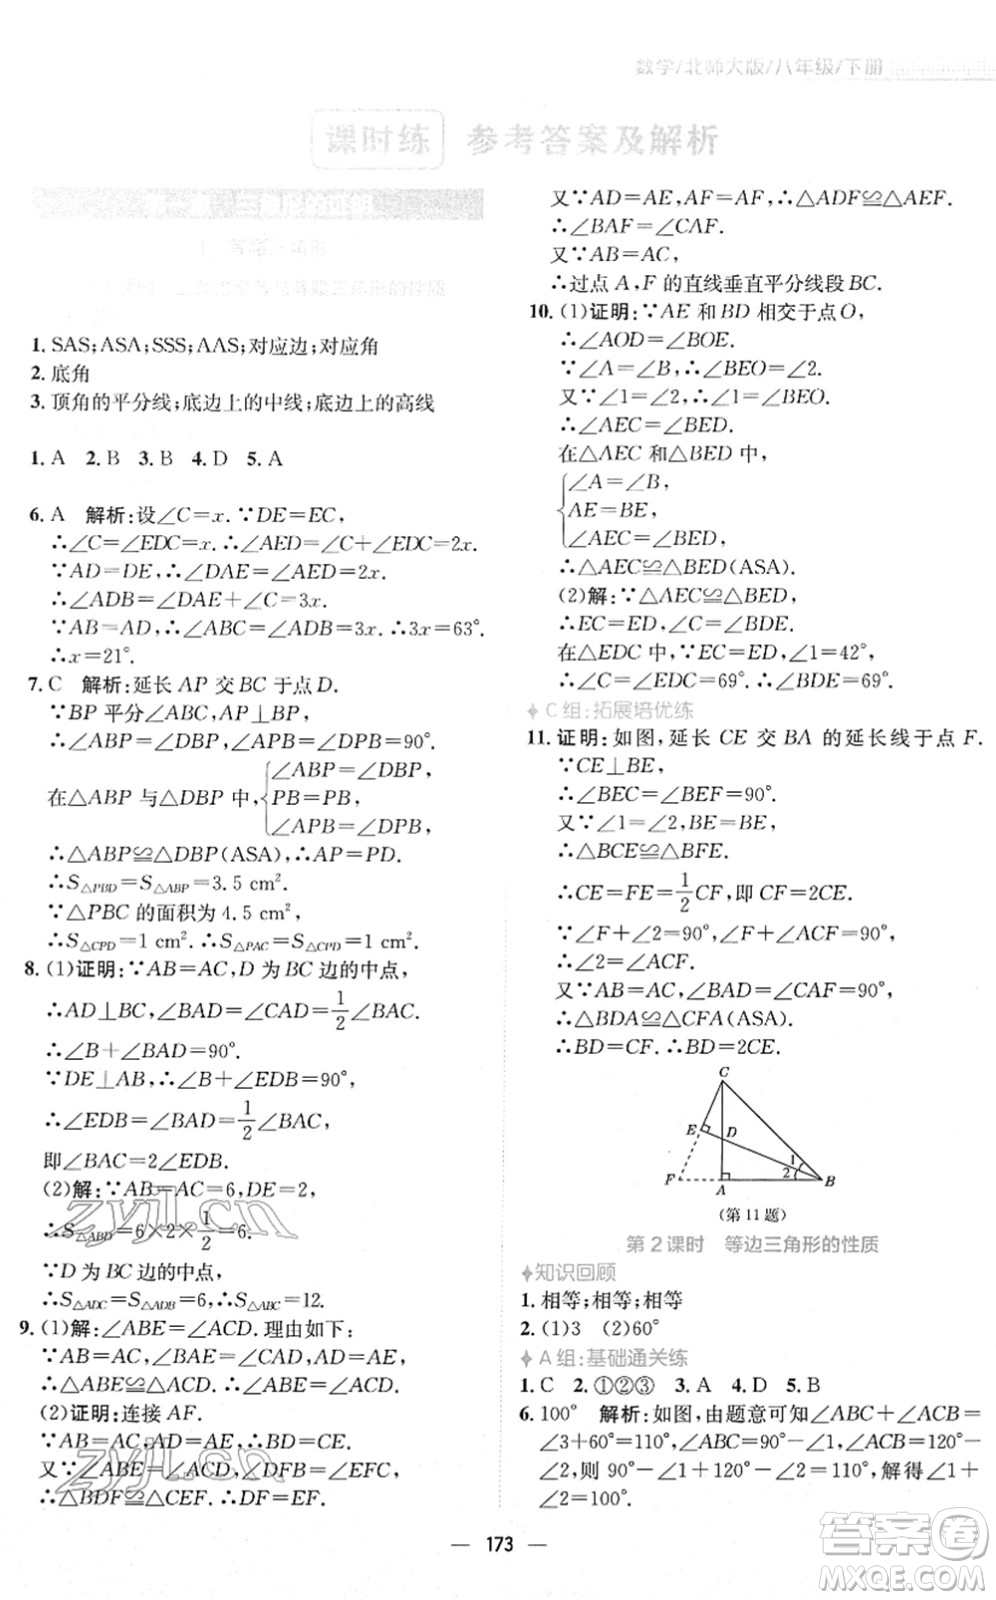 数学/北师大版/八年级/下册
课时练 参考答案及解析
第一章 三角形的证明
等腰三角形
等腰三角形的性质
1. SAS;ASA;SSS;AAS;对应边;对应角
2. 底角
3. 顶角的平分线;底边上的中线;底边上的高线
1. A 2. B 3. B 4. D 5. A
6. A 解析:设∠C=x. ∵DE=EC,
∴∠C=∠EDC=x. ∴∠AED=∠C+∠EDC=2x.
∵AD=DE,∴∠DAE=∠AED=2x.
∴∠ADB=∠DAE+∠C=3x.
∵AB=AD,∴∠ABC=∠ADB=3x. ∴3x=63°.
∴x=21°.
7. C 解析:延长 AP 交 BC 于点 D.
∵BP 平分∠ABC,AP⊥BP,
∴∠ABP=∠DBP,∠APB=∠DPB=90°.
在△ABP 与△DBP 中,{∠ABP=∠DBP,
PB=PB,
∠APB=∠DPB,
∴△ABP≌△DBP(ASA). ∴AP=PD.
∴S△PBD=S△ABP=3.5 cm².
∵△PBC 的面积为 4.5 cm²,
∴S△CPD=1 cm². ∴S△PAC=S△CPD=1 cm².
8. (1)证明:∵AB=AC,D 为 BC 边的中点,
∴AD⊥BC,∠BAD=∠CAD=1/2∠BAC.
∴∠B+∠BAD=90°.
∵DE⊥AB,∴∠B+∠EDB=90°,
∴∠EDB=∠BAD=1/2∠BAC,
即∠BAC=2∠EDB.
(2)解:∵AB=AC=6,DE=2,
∴S△ABD=6×2×1/2=6.
∵D 为 BC 边的中点,
∴S△ADC=S△ADB=6,∴S△ABC=12.
9. (1)解:∠ABE=∠ACD.理由如下:
∵AB=AC,∠BAE=∠CAD,AE=AD,
∴△ABE≌△ACD. ∴∠ABE=∠ACD.
(2)证明:连接 AF.
∵AB=AC,AD=AE,∴BD=CE.
又∵∠ABE=∠ACD,∠DFB=∠EFC,
∴△BDF≌△CEF. ∴DF=EF.
又∵AD=AE,AF=AF,∴△ADF≌△AEF.
∴∠BAF=∠CAF.
又∵AB=AC,
∴过点 A,F 的直线垂直平分线段 BC.
10. (1)证明:∵AE 和 BD 相交于点 O,
∴∠AOD=∠BOE.
∵∠A=∠B,∴∠BEO=∠2.
又∵∠1=∠2,∴∠1=∠BEO.
∴∠AEC=∠BED.
在△AEC 和△BED 中,
{∠A=∠B,
AE=BE,
∠AEC=∠BED,
∴△AEC≌△BED(ASA).
(2)解:∵△AEC≌△BED,
∴EC=ED,∠C=∠BDE.
在△EDC 中,∵EC=ED,∠1=42°,
∴∠C=∠EDC=69°. ∴∠BDE=69°.
C 组:拓展培优练
11. 证明:如图,延长 CE 交 BA 的延长线于点 F.
∵CE⊥BE,
∴∠BEC=∠BEF=90°.
又∵∠1=∠2,BE=BE,
∴△BCE≌△BFE.
∴CE=FE=1/2CF,即 CF=2CE.
∵∠F+∠2=90°,∠F+∠ACF=90°,
∴∠2=∠ACF.
又∵AB=AC,∠BAD=∠CAF=90°,
∴△BDA≌△CFA(ASA).
∴BD=CF. ∴BD=2CE.
C
E
D
1
2
F
A
B
(第 11 题)
第 2 课时 等边三角形的性质
知识回顾
1. 相等;相等;相等
2. (1)3 (2)60°
A 组:基础通关练
1. C 2. ①②③ 3. A 4. D 5. B
6. 100° 解析:如图,由题意可知∠ABC+∠ACB=
∠3+60°=110°,∠2+∠ACB=120°-∠ABC=120°-
∠2,则 90°-∠1+110°=120°-∠2,解得∠1+
∠2=100°.
zyjl.cn
zyjl.cn
答案圈
MXQE.COM
— 173 —